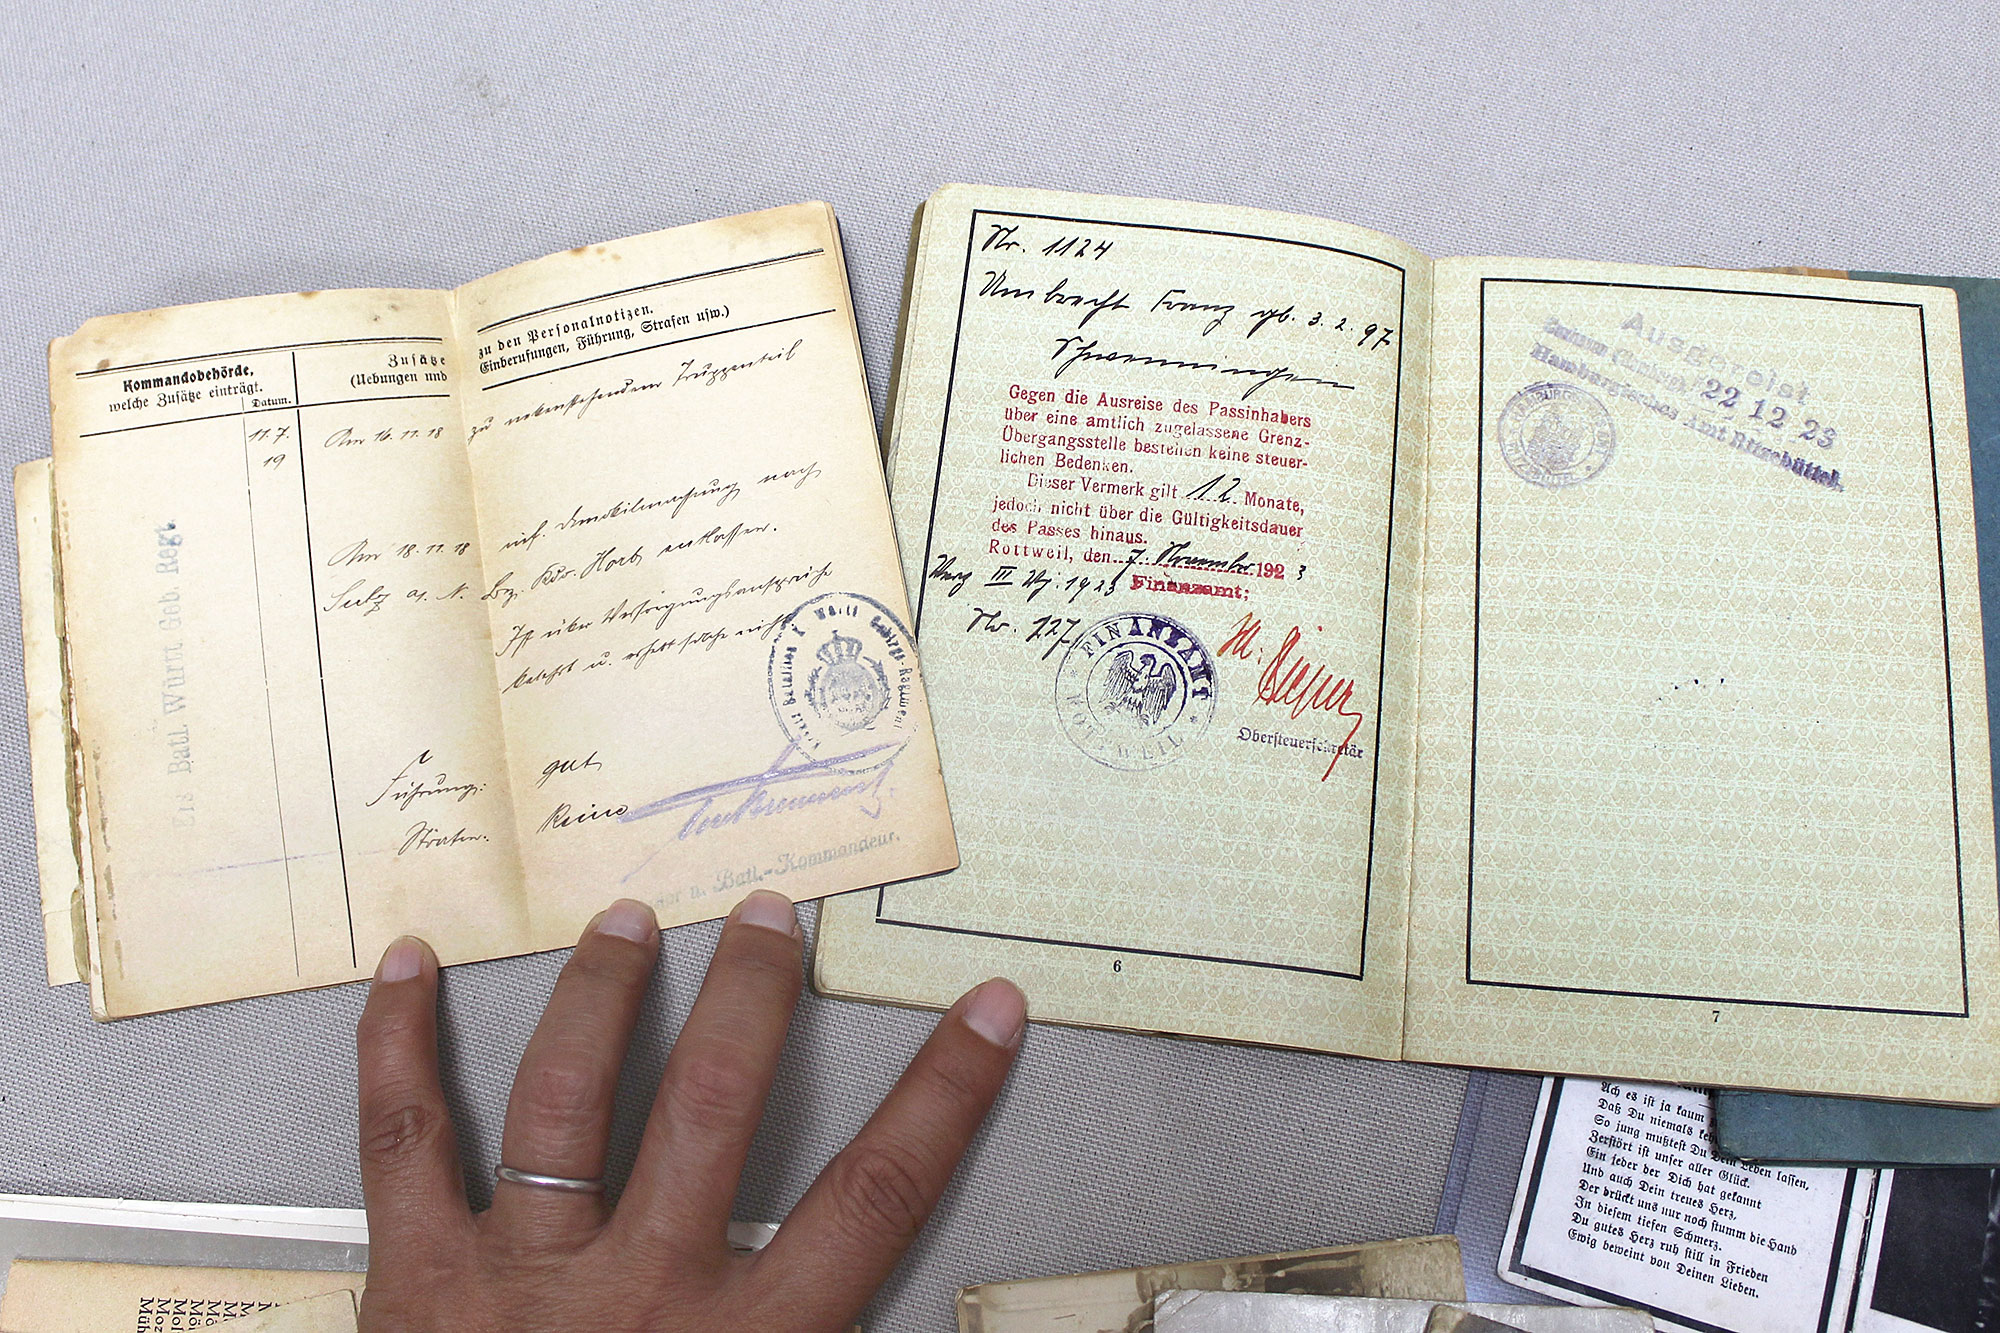 Kommandobehörde,
welche Zusätze einträgt.
Datum.
Zusätze
(Uebungen und
zu den Personalnotizen.
Einberufungen, Führung, Strafen usw.)
11.7.
19
Am 16.11.18
zu nebenstehendem Truppenteil
Am 18.11.18
inf. Demobilmachung nach
Sulz a. N. Bz. Kdo. Horb entlassen.
Ist über Versorgungsansprüche
belehrt u. erhebt solche nicht.
Führung: gut
Strafen: Keine
Batl. Württ Geb. Regt.
Württ Gebirgs-Regiment
u. Batl.-Kommandeur.
Nr. 1124
Umbrecht Franz gb. 3.2.97
Schwenningen
Gegen die Ausreise des Passinhabers
über eine amtlich zugelassene Grenz-
Übergangsstelle bestehen keine steuer-
lichen Bedenken.
Dieser Vermerk gilt 12 Monate,
jedoch nicht über die Gültigkeitsdauer
des Passes hinaus.
Rottweil, den 7. November 1923
Finanzamt;
Verz III Vj. 1923
Nr. 127
FINANZAMT
ROTTWEIL
Obersteuersekretär
6
Ausgereist
22 12 23
Hamburgisches Amt Ritzebüttel.
7
Ach es ist ja kaum
Daß Du niemals keh
So jung mußtest Du Dein Leben lassen,
Zerstört ist unser aller Glück.
Ein jeder der Dich hat gekannt
Und auch Dein treues Herz,
Der drückt uns nur noch stumm die Hand
In diesem tiefen Schmerz.
Du gutes Herz ruh still in Frieden
Ewig beweint von Deinen Lieben.